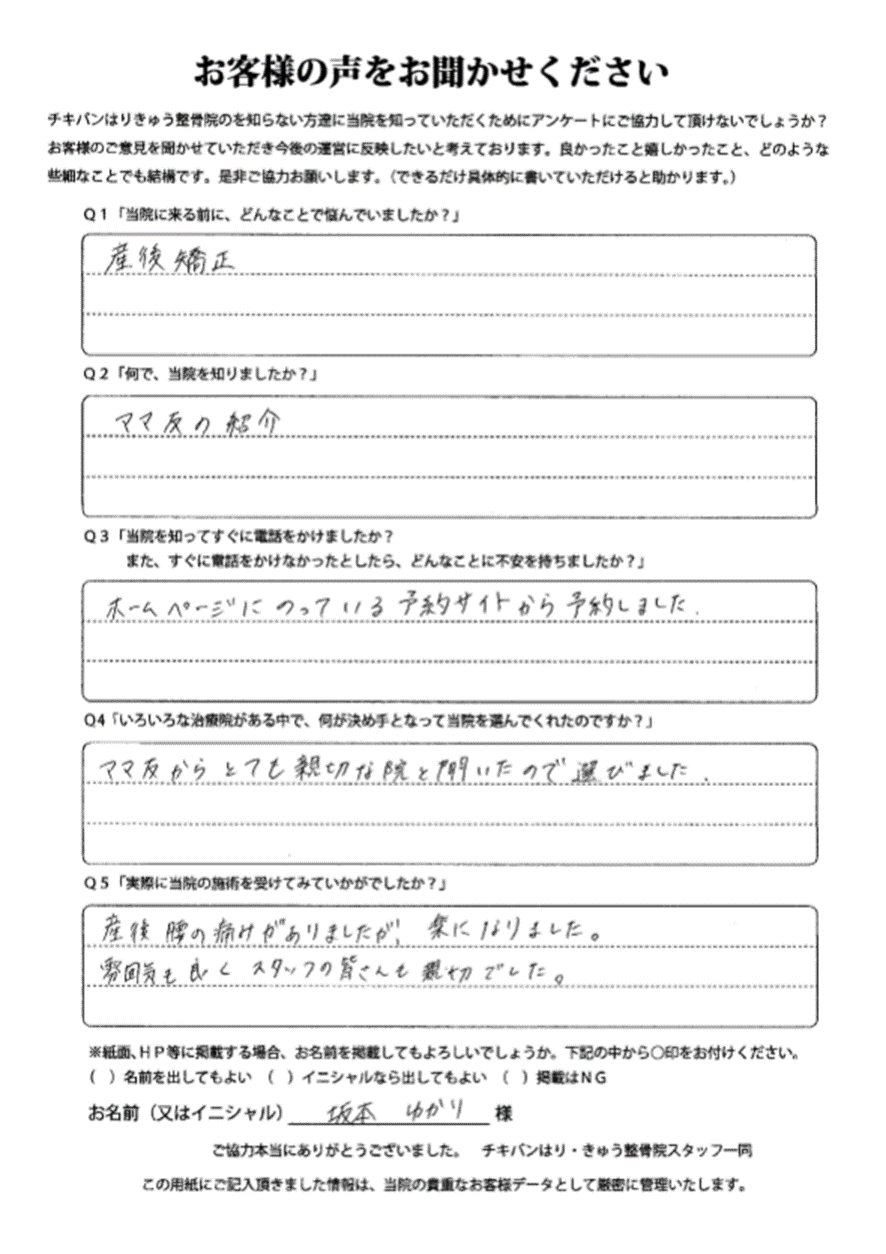 お客様の声をお聞かせください
チキバンはりきゅう整骨院のを知らない方達に当院を知っていただくためにアンケートにご協力して頂けないでしょうか？
お客様のご意見を聞かせていただき今後の運営に反映したいと考えております。良かったこと嬉しかったこと、どのような
些細なことでも結構です。是非ご協力お願いします。（できるだけ具体的に書いていただけると助かります。）
Q１「当院に来る前に、どんなことで悩んでいましたか？」
産後矯正
Q２「何で、当院を知りましたか？」
ママ友の紹介
Q３「当院を知ってすぐに電話をかけましたか？
また、すぐに電話をかけなかったとしたら、どんなことに不安を持ちましたか？」
ホームページにのっている予約サイトから予約しました.
Q4「いろいろな治療院がある中で、何が決め手となって当院を選んでくれたのですか？」
ママ友からとても親切な院と聞いたので選びました.
Q５「実際に当院の施術を受けてみていかがでしたか？」
産後腰の痛けがありましたが、楽になりました。
雰囲気も良くスタッフの皆さんも親切でした。
※紙面、ＨＰ等に掲載する場合、お名前を掲載してもよろしいでしょうか。下記の中から〇印をお付けください。
（　）名前を出してもよい　（　）イニシャルなら出してもよい　（　）掲載はＮＧ
お名前（又はイニシャル） 坂本　ゆかり 様
ご協力本当にありがとうございました。　チキバンはり・きゅう整骨院スタッフ一同
この用紙にご記入頂きました情報は、当院の貴重なお客様データとして厳密に管理いたします。